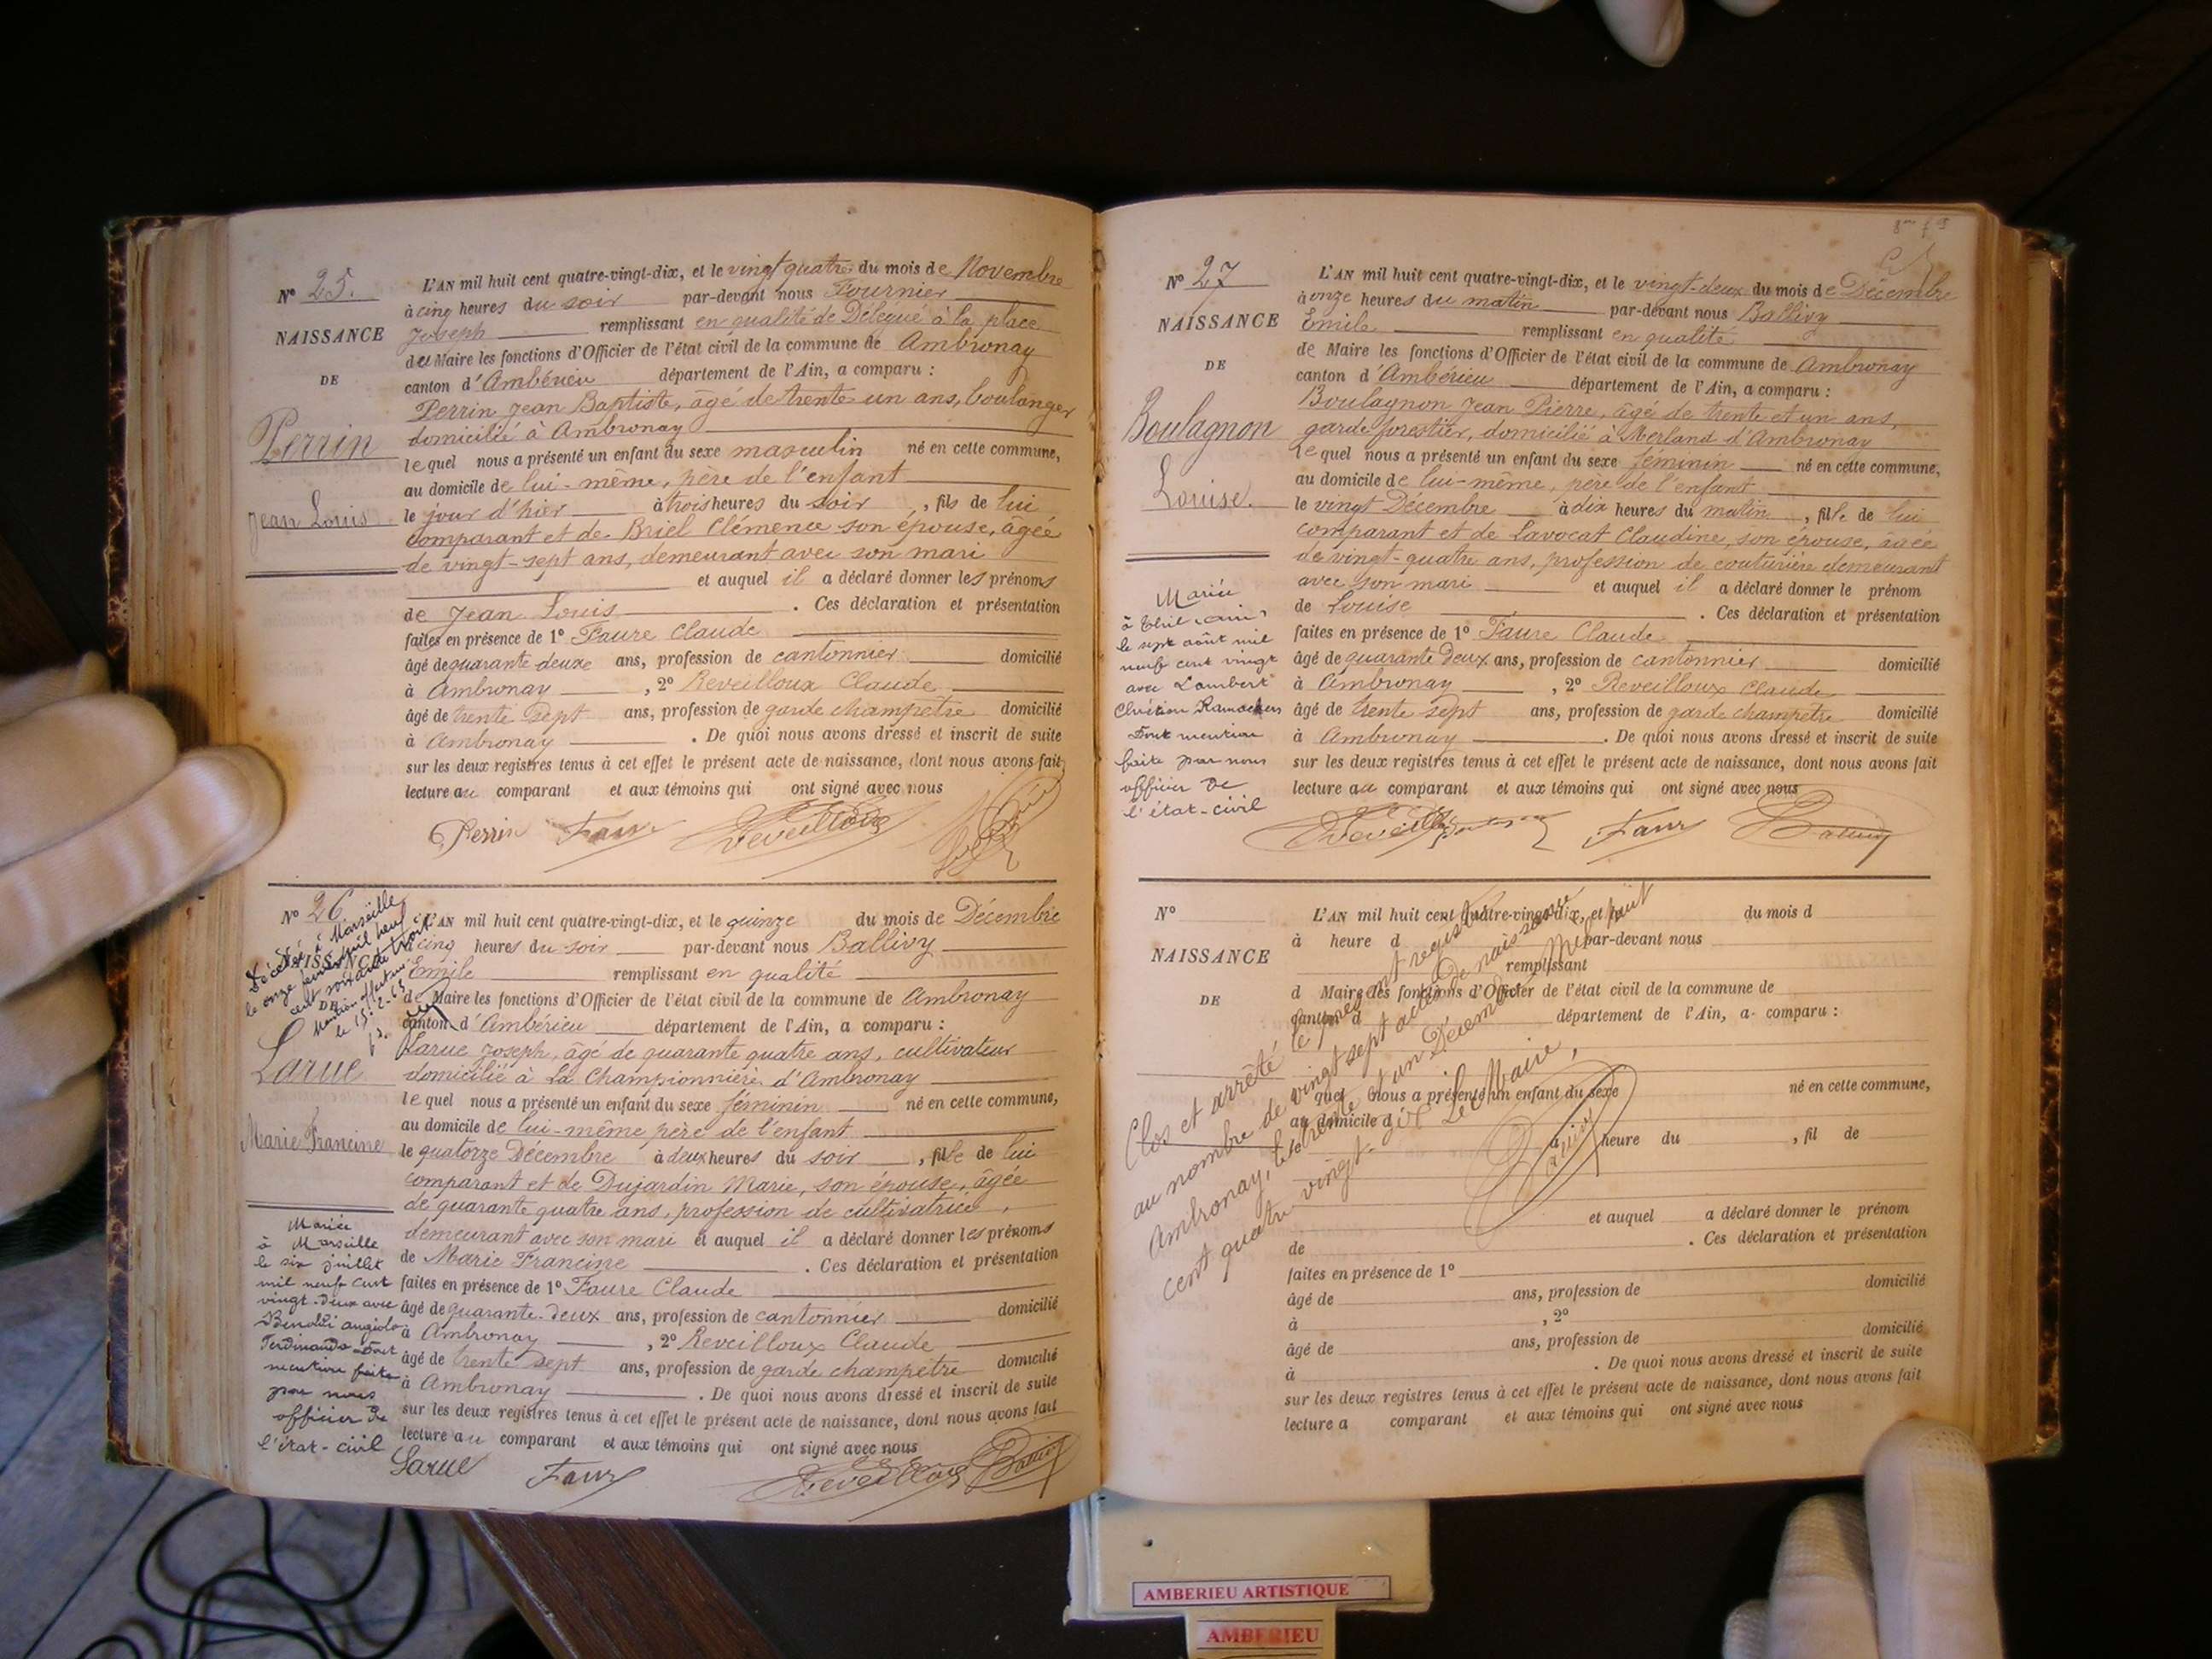 N° 25.
NAISSANCE
DE
Perrin
Jean Louis
L'AN mil huit cent quatre-vingt-dix, et le vingt quatre du mois de Novembre
à cinq heures du soir par-devant nous Fournier
Joseph remplissant en qualité de Délégué à la place
du Maire les fonctions d'Officier de l'état civil de la commune de Ambronay
canton d'Ambérieu département de l'Ain, a comparu :
Perrin Jean Baptiste, âgé de trente un ans, boulanger
domicilié à Ambronay
lequel nous a présenté un enfant du sexe masculin né en cette commune,
au domicile de lui-même, père de l'enfant
le jour d'hier à trois heures du soir, fils de lui
comparant et de Briel Clémence son épouse, âgée
de vingt-sept ans, demeurant avec son mari
et auquel il a déclaré donner les prénoms
de Jean Louis. Ces déclaration et présentation
faites en présence de 1° Faure Claude
âgé de quarante deuxe ans, profession de cantonnier domicilié
à Ambronay, 2° Reveilloux Claude
âgé de trente sept ans, profession de garde champetre domicilié
à Ambronay. De quoi nous avons dressé et inscrit de suite
sur les deux registres tenus à cet effet le présent acte de naissance, dont nous avons fait
lecture au comparant et aux témoins qui ont signé avec nous
Perrin Faure Reveilloux
N° 26
NAISSANCE
DE
Décédée à Marseille
le onze février mil neuf
cent soixante trois
Mention effectuée
le 15-2-63
Larue
Marie Francine
Mariée
à Marseille
le six juillet
mil neuf cent
vingt-deux avec
angiolo
Ferdinando Dont
mention faite
par nous
officier de
l'état-civil
L'AN mil huit cent quatre-vingt-dix, et le quinze du mois de Décembre
à cinq heures du soir par-devant nous Ballivy
Emile remplissant en qualité
de Maire les fonctions d'Officier de l'état civil de la commune de Ambronay
canton d'Ambérieu département de l'Ain, a comparu :
Larue Joseph, âgé de quarante quatre ans, cultivateur
domicilié à La Championnière d'Ambronay
lequel nous a présenté un enfant du sexe féminin né en cette commune,
au domicile de lui-même père de l'enfant
le quatorze Décembre à deux heures du soir, fille de lui
comparant et de Dujardin Marie, son épouse, âgée
de quarante quatre ans, profession de cultivatrice,
demeurant avec son mari et auquel il a déclaré donner les prénoms
de Marie Francine. Ces déclaration et présentation
faites en présence de 1° Faure Claude
âgé de quarante-deux ans, profession de cantonnier domicilié
à Ambronay, 2° Reveilloux Claude
âgé de trente sept ans, profession de garde champetre domicilié
à Ambronay. De quoi nous avons dressé et inscrit de suite
sur les deux registres tenus à cet effet le présent acte de naissance, dont nous avons fait
lecture au comparant et aux témoins qui ont signé avec nous
Larue Faure Reveilloux Ballivy
N° 27
NAISSANCE
DE
Boulagnon
Louise.
Mariée
le sept août mil
neuf cent vingt
avec Lambert
Chrétien
Dont mention
faite par nous
officier de
l'état-civil
L'AN mil huit cent quatre-vingt-dix, et le vingt-deux du mois de Décembre
à onze heures du matin par-devant nous Ballivy
Emile remplissant en qualité
de Maire les fonctions d'Officier de l'état civil de la commune de Ambronay
canton d'Ambérieu département de l'Ain, a comparu :
Boulagnon Jean Pierre, âgé de trente et un ans,
garde forestier, domicilié à Merland d'Ambronay
lequel nous a présenté un enfant du sexe féminin né en cette commune,
au domicile de lui-même, père de l'enfant
le vingt Décembre à dix heures du matin, fille de lui
comparant et de Lavocat Claudine, son épouse, âgée
de vingt-quatre ans, profession de couturière demeurant
avec son mari et auquel il a déclaré donner le prénom
de Louise. Ces déclaration et présentation
faites en présence de 1° Faure Claude
âgé de quarante deux ans, profession de cantonnier domicilié
à Ambronay, 2° Reveilloux Claude
âgé de trente sept ans, profession de garde champetre domicilié
à Ambronay. De quoi nous avons dressé et inscrit de suite
sur les deux registres tenus à cet effet le présent acte de naissance, dont nous avons fait
lecture au comparant et aux témoins qui ont signé avec nous
Reveilloux Faure Ballivy
N°
NAISSANCE
DE
L'AN mil huit cent quatre-vingt-dix, et le du mois d
à heure d par-devant nous
remplissant
d Maire les fonctions d'Officier de l'état civil de la commune de
canton d département de l'Ain, a comparu :
quel nous a présenté un enfant du sexe né en cette commune,
au domicile d
à heure du, fil de
et auquel a déclaré donner le prénom
de. Ces déclaration et présentation
faites en présence de 1° domicilié
âgé de ans, profession de
à, 2°
âgé de ans, profession de domicilié
à. De quoi nous avons dressé et inscrit de suite
sur les deux registres tenus à cet effet le présent acte de naissance, dont nous avons fait
lecture a comparant et aux témoins qui ont signé avec nous
Clos et arrêté le présent registre
au nombre de vingt sept actes de naissance
Ambronay, le trente et un Décembre Mil huit
cent quatre vingt-dix Le Maire,
AMBERIEU ARTISTIQUE
AMBERIEU